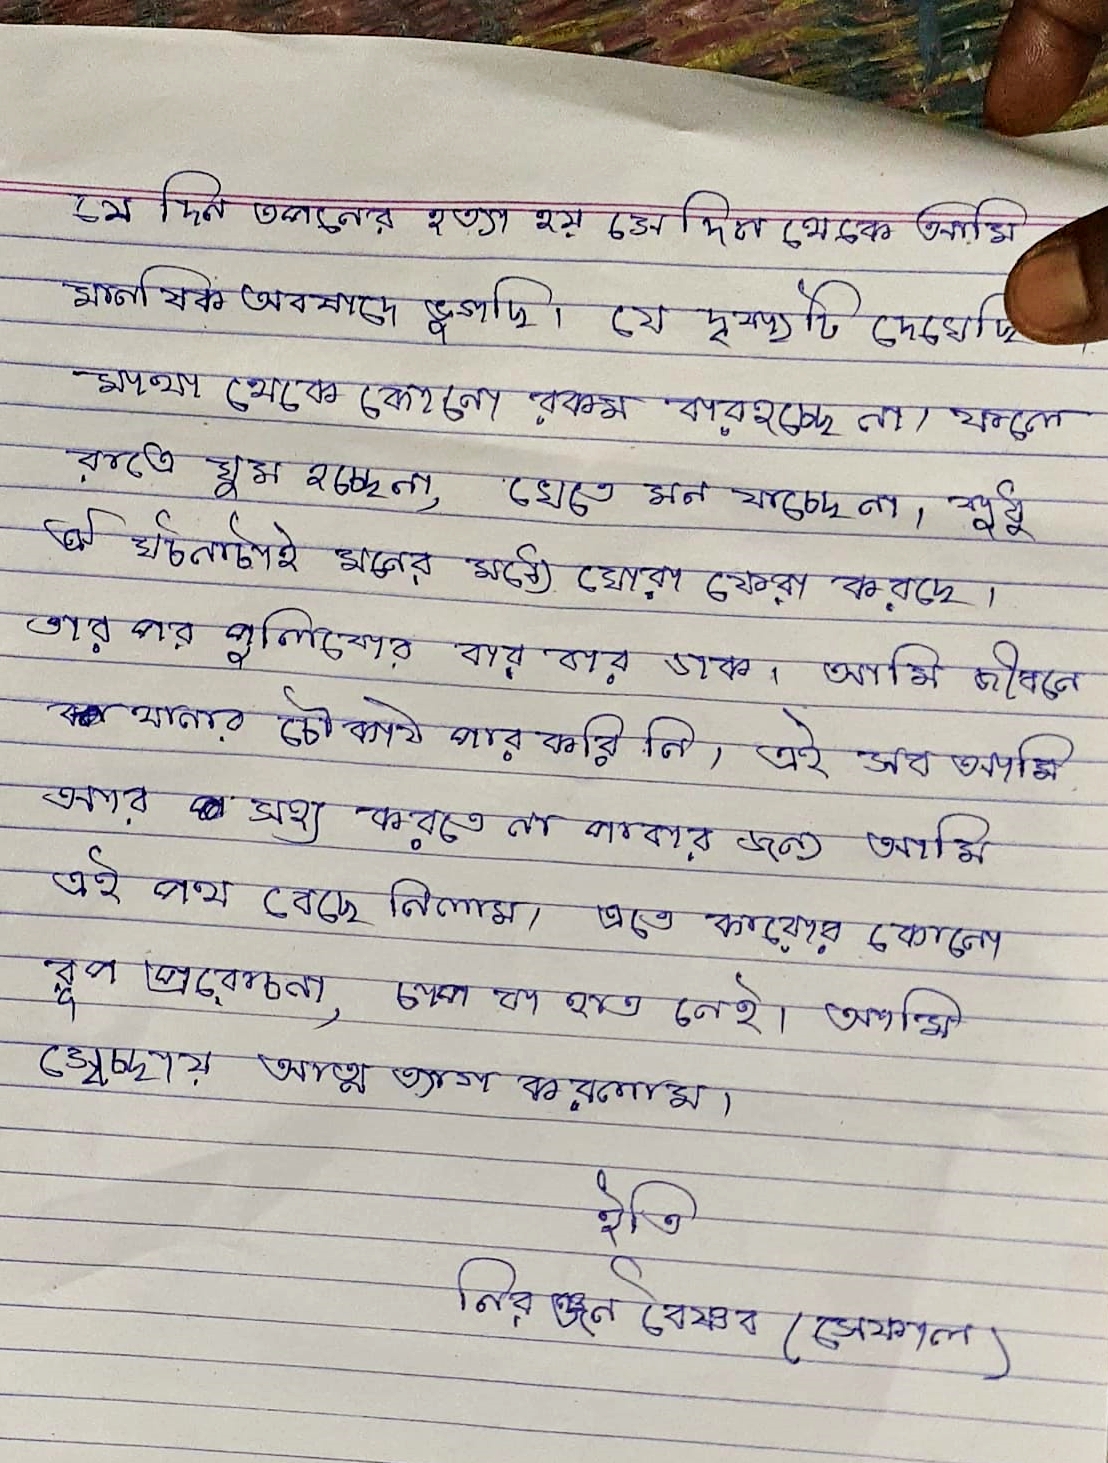 যে দিন তপনের হত্যা হয় সে দিন থেকে আমি
মানষিক অবষাদে ভুগছি। যে দৃষ্যটি দেখেছি
মাথা থেকে কোনো রকম বার হচ্ছে না। ফলে
রাতে ঘুম হচ্ছেনা, খেতে মন যাচ্ছে না, শুধু
ঐ ঘটনাটাই মনের মধ্যে ঘোরা ফেরা করছে।
তার পর পুলিশের বার বার ডাক। আমি জীবনে
থানার চৌকাঠ পার করি নি। এই সব আমি
আর সহ্য করতে না পাবার জন্য আমি
এই পথ বেছে নিলাম। এতে কারোর কোনো
রূপ প্ররোচনা, চাপ বা হাত নেই। আমি
স্বেচ্ছায় আত্ম ত্যাগ করলাম।
ইতি
নিরঞ্জন বৈষ্ণব (সেফাল)